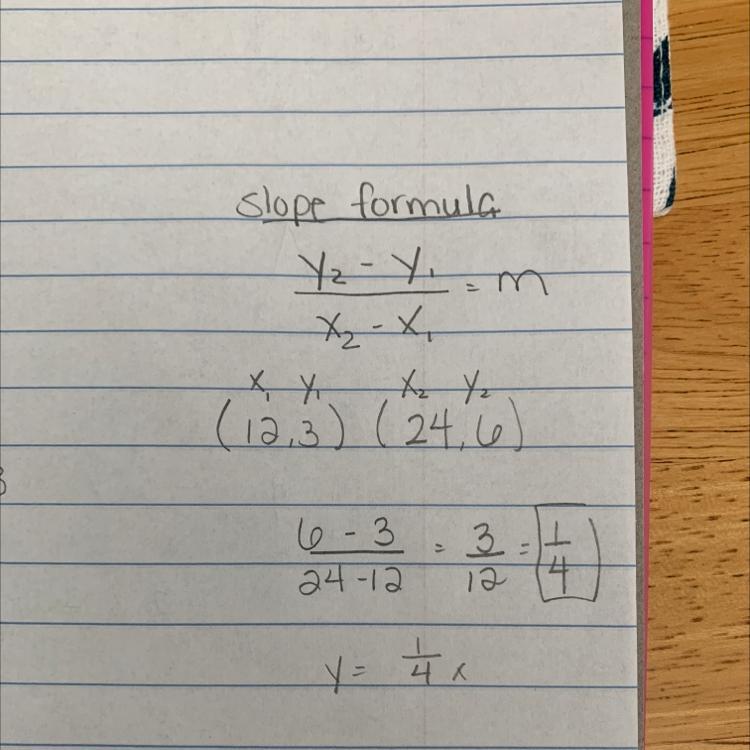 slope formula
y₂ - y₁ / x₂ - x₁ = m
x₁ y₁ x₂ y₂
(12,3) (24,6)
6 - 3 / 24 - 12 = 3/12 = 1/4
y = 1/4 x